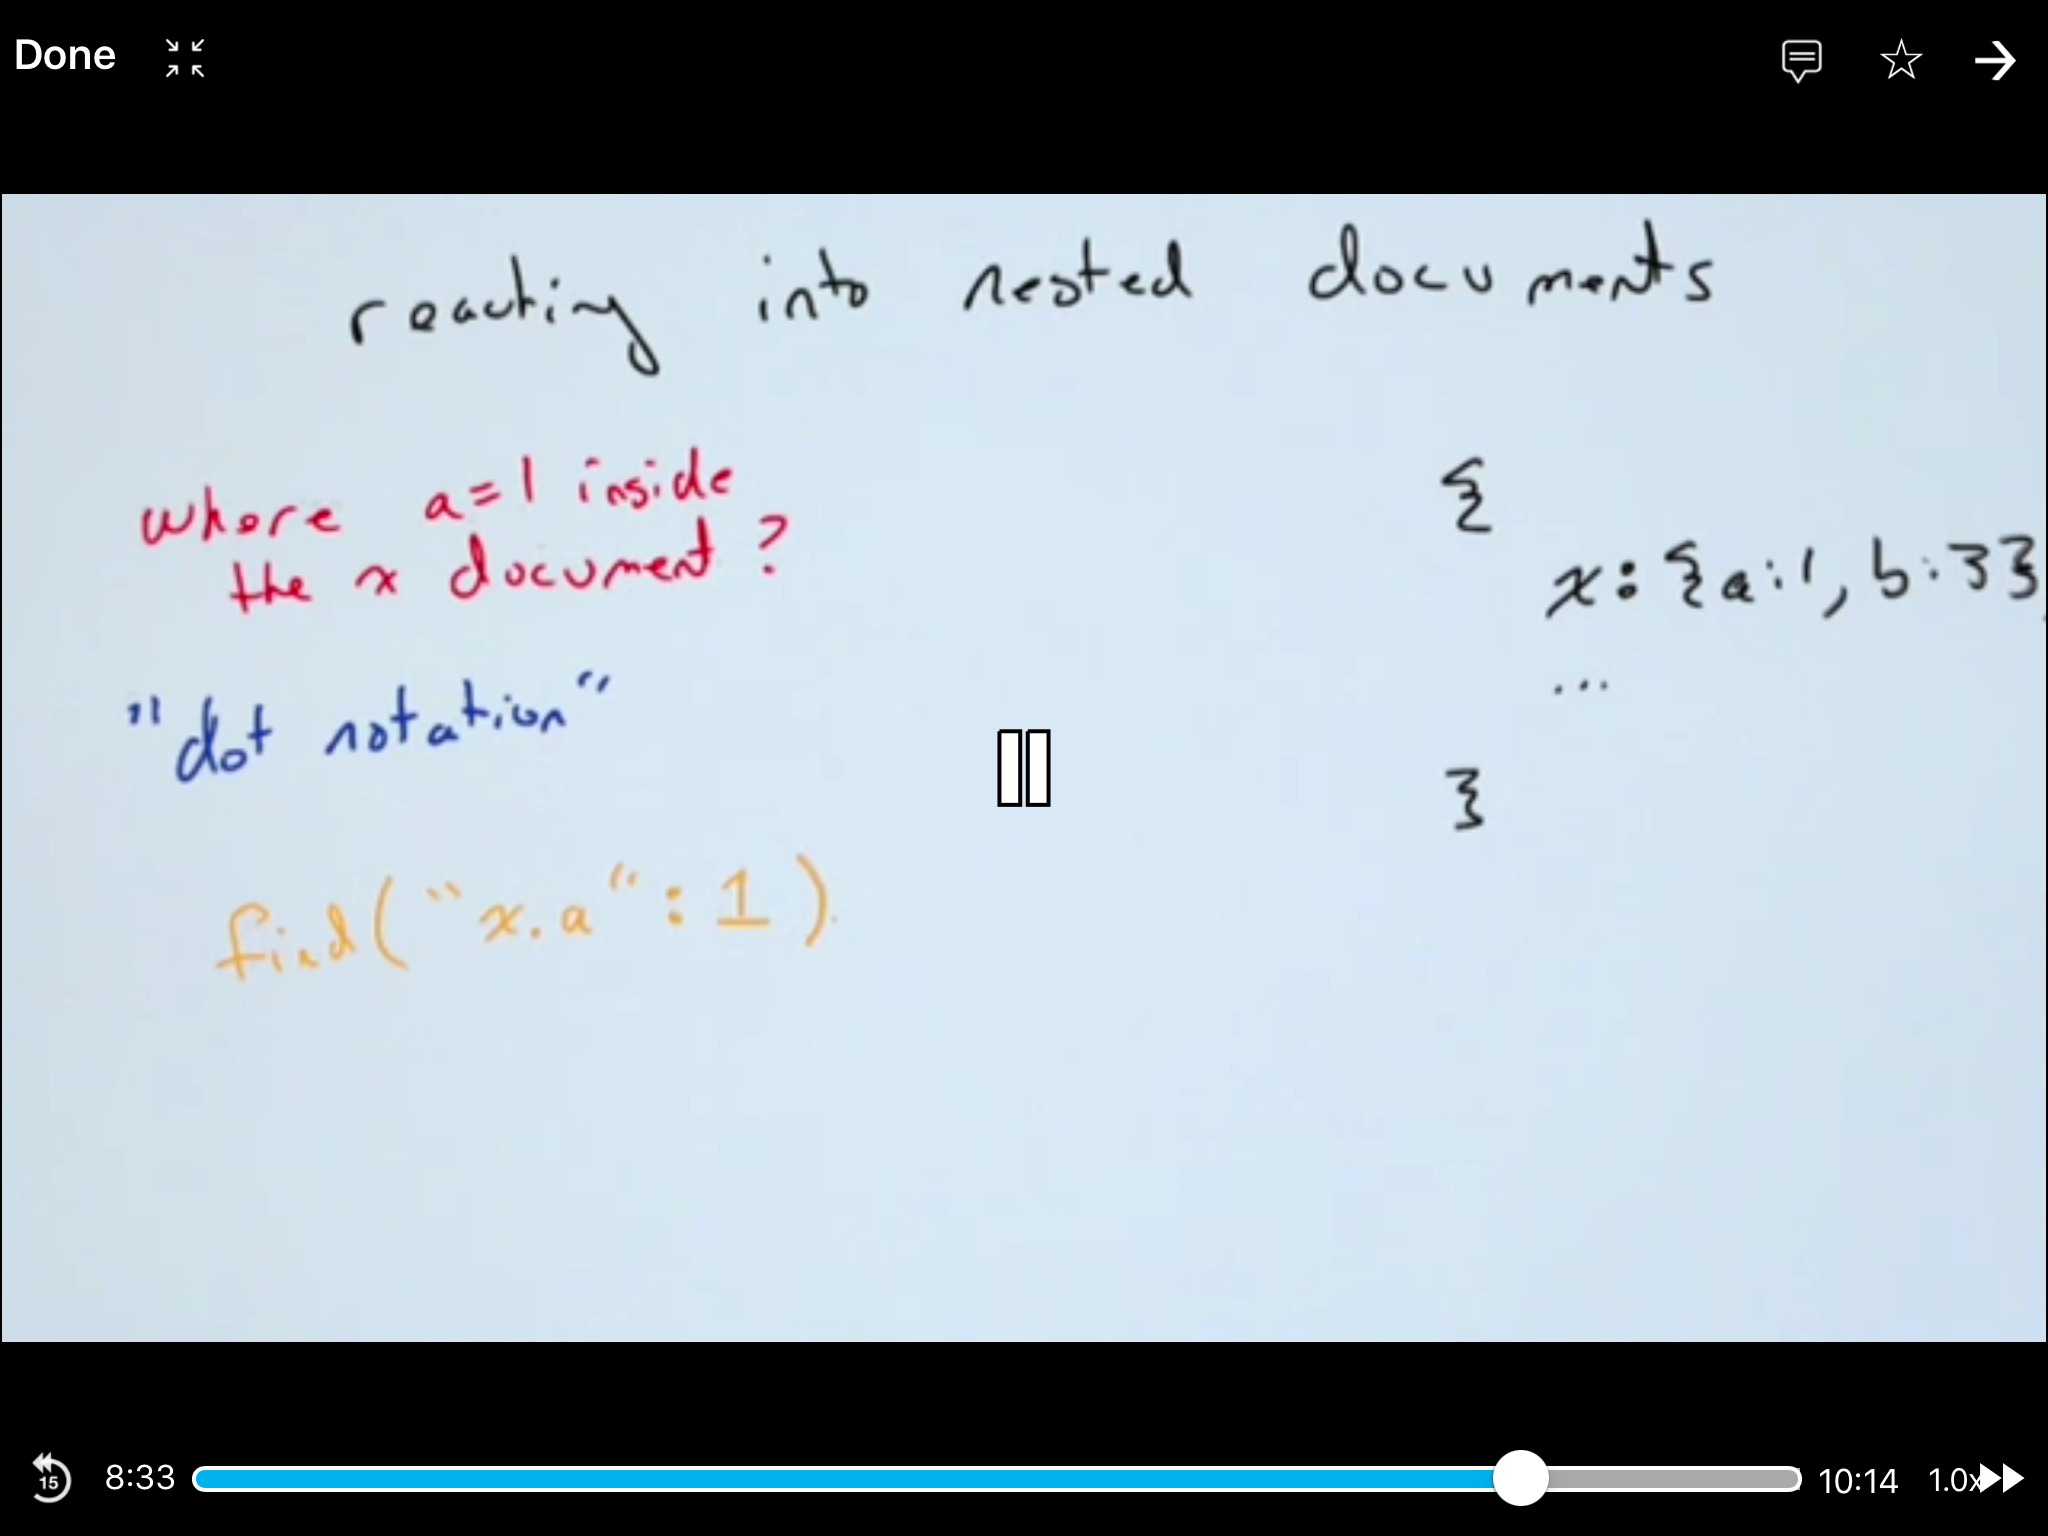 Done
reaching into nested documents
where a=1 inside
the x document?
"dot notation"
find("x.a": 1)
{
x: {a:1, b:3},
...
}
15
8:33
10:14
1.0x